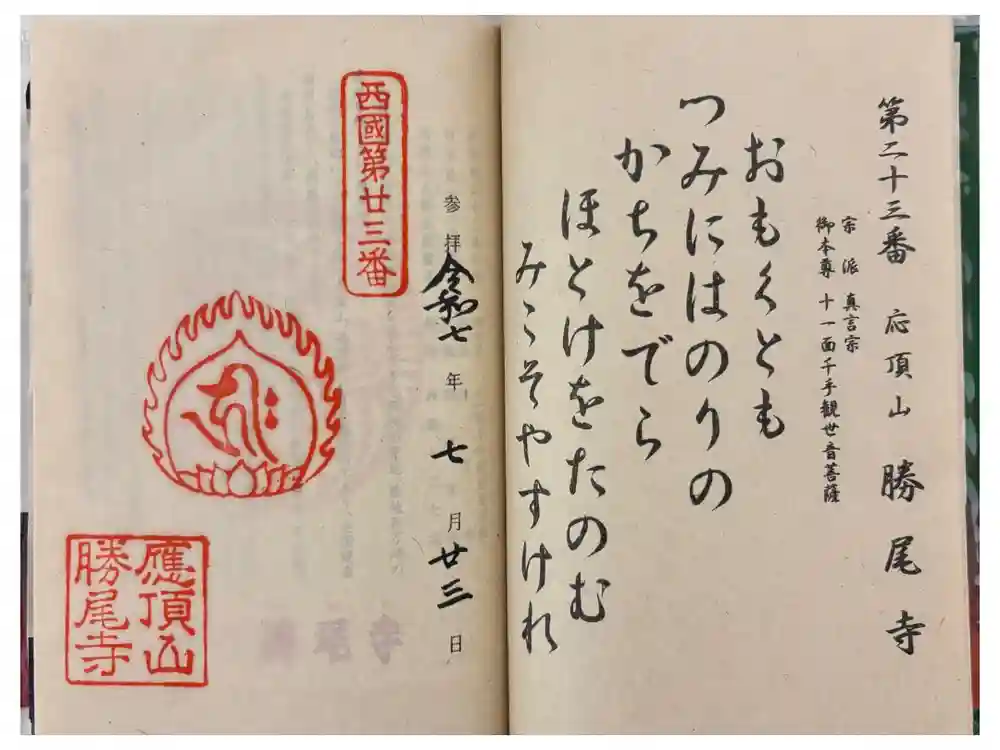 第二十三番 応頂山 勝尾寺
宗派 真言宗
御本尊 十一面千手観世音菩薩
おもくとも
つみにはのりの
かちをでら
ほとけをたのむ
みこそやすけれ
参拝 令和七年 七月廿三日
西國第廿三番
應頂山
勝尾寺